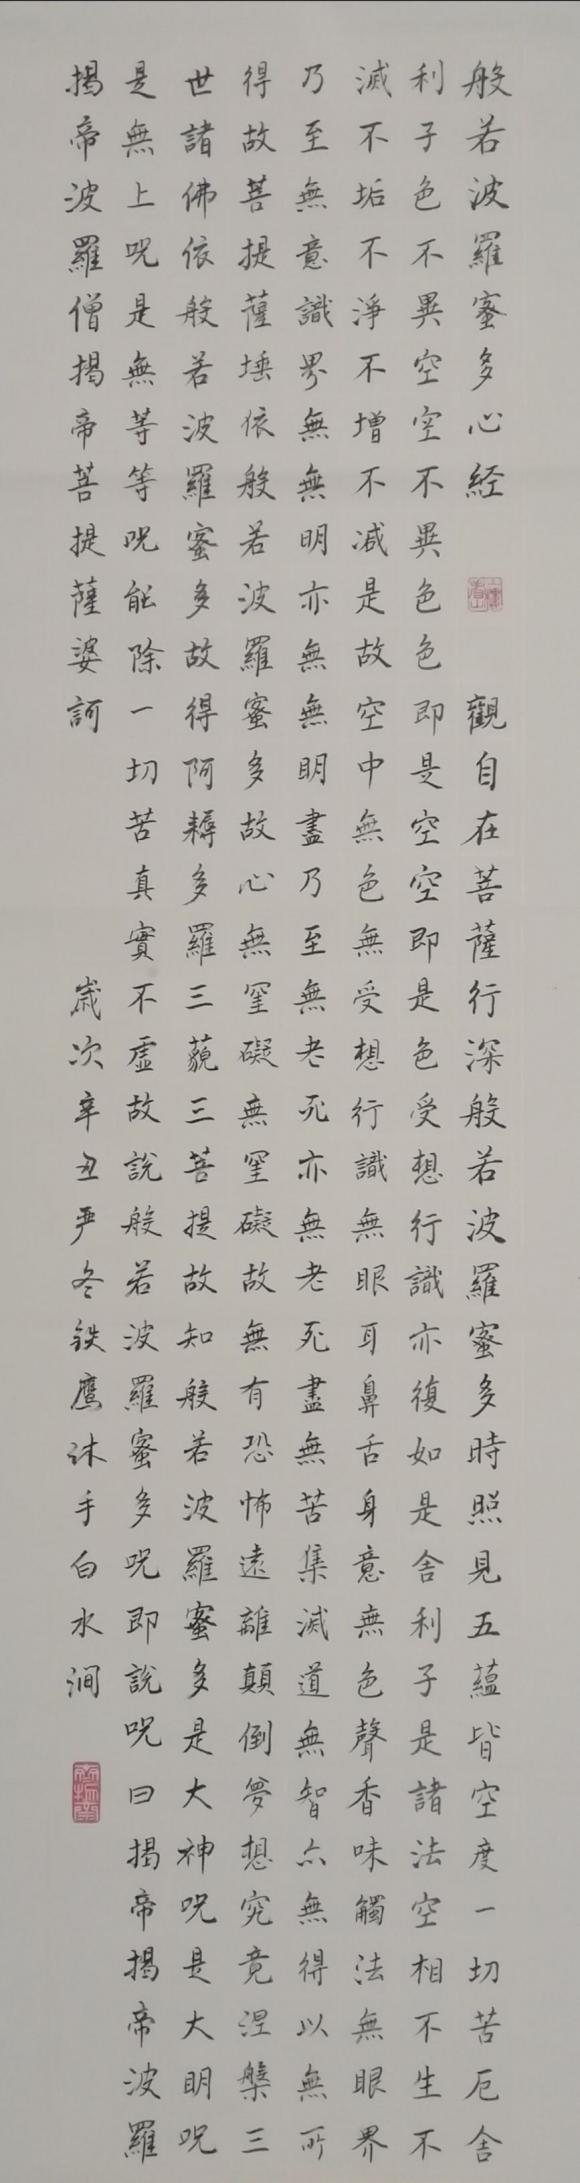 般若波羅蜜多心経 觀自在菩薩行深般若波羅蜜多時照見五蘊皆空度一切苦厄舍
利子色不異空空不異色色即是空空即是色受想行識亦復如是舍利子是諸法空相不生不
滅不垢不淨不增不減是故空中無色無受想行識無眼耳鼻舌身意無色聲香味觸法無眼界
乃至無意識界無無明亦無無明盡乃至無老死亦無老死盡無苦集滅道無智亦無得以無所
得故菩提薩埵依般若波羅蜜多故心無罣礙無罣礙故無有恐怖遠離顛倒夢想究竟涅槃三
世諸佛依般若波羅蜜多故得阿耨多羅三藐三菩提故知般若波羅蜜多是大神咒是大明咒
是無上咒是無等等咒能除一切苦真實不虛故說般若波羅蜜多咒即說咒曰揭帝揭帝波羅
揭帝波羅僧揭帝菩提薩婆訶 歲次辛丑严冬铁鹰沐手白水涧